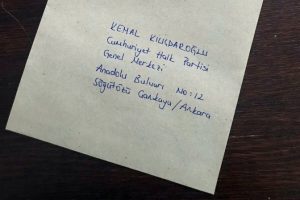 KEMAL KILIÇDAROĞLU
Cumhuriyet Halk Partisi
Genel Merkezi
Anadolu Bulvarı No: 12
Söğütözü Çankaya/Ankara